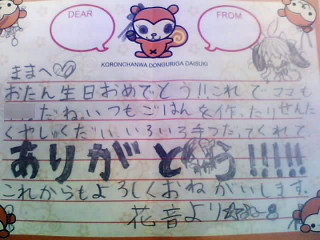 DEAR
FROM
KORONCHANWA DONGURIGA DAISUKI
ままへ
おたん生日おめでとう!!これでママも
だね。いつもごはんを作ったりせんた
くやしゅくだい、いろいろ手つだってくれて
ありがとう!!!!!
これからもよろしくおねがいします。
花音より